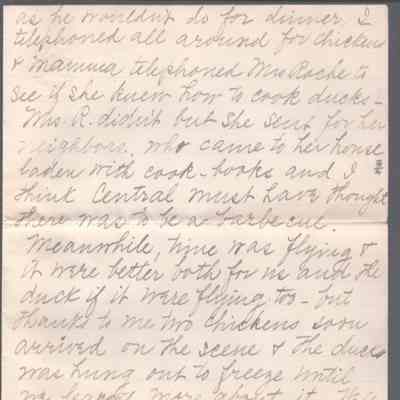 as he wouldn't do for dinner. I
telephoned all around for chickens
& Mamma telephoned Mrs Roche to
see if she knew how to cook ducks -
Mrs. R. didn't but she sent for her
neighbors, who came to her house
laden with cook-books and I
think Central must have thought
there was to be a barbecue.
Meanwhile, time was flying &
it were better both for us and the
duck if it were flying too - but
thanks to me two chickens soon
arrived on the scene & the duck
was hung out to freeze until
we learned more about it. The